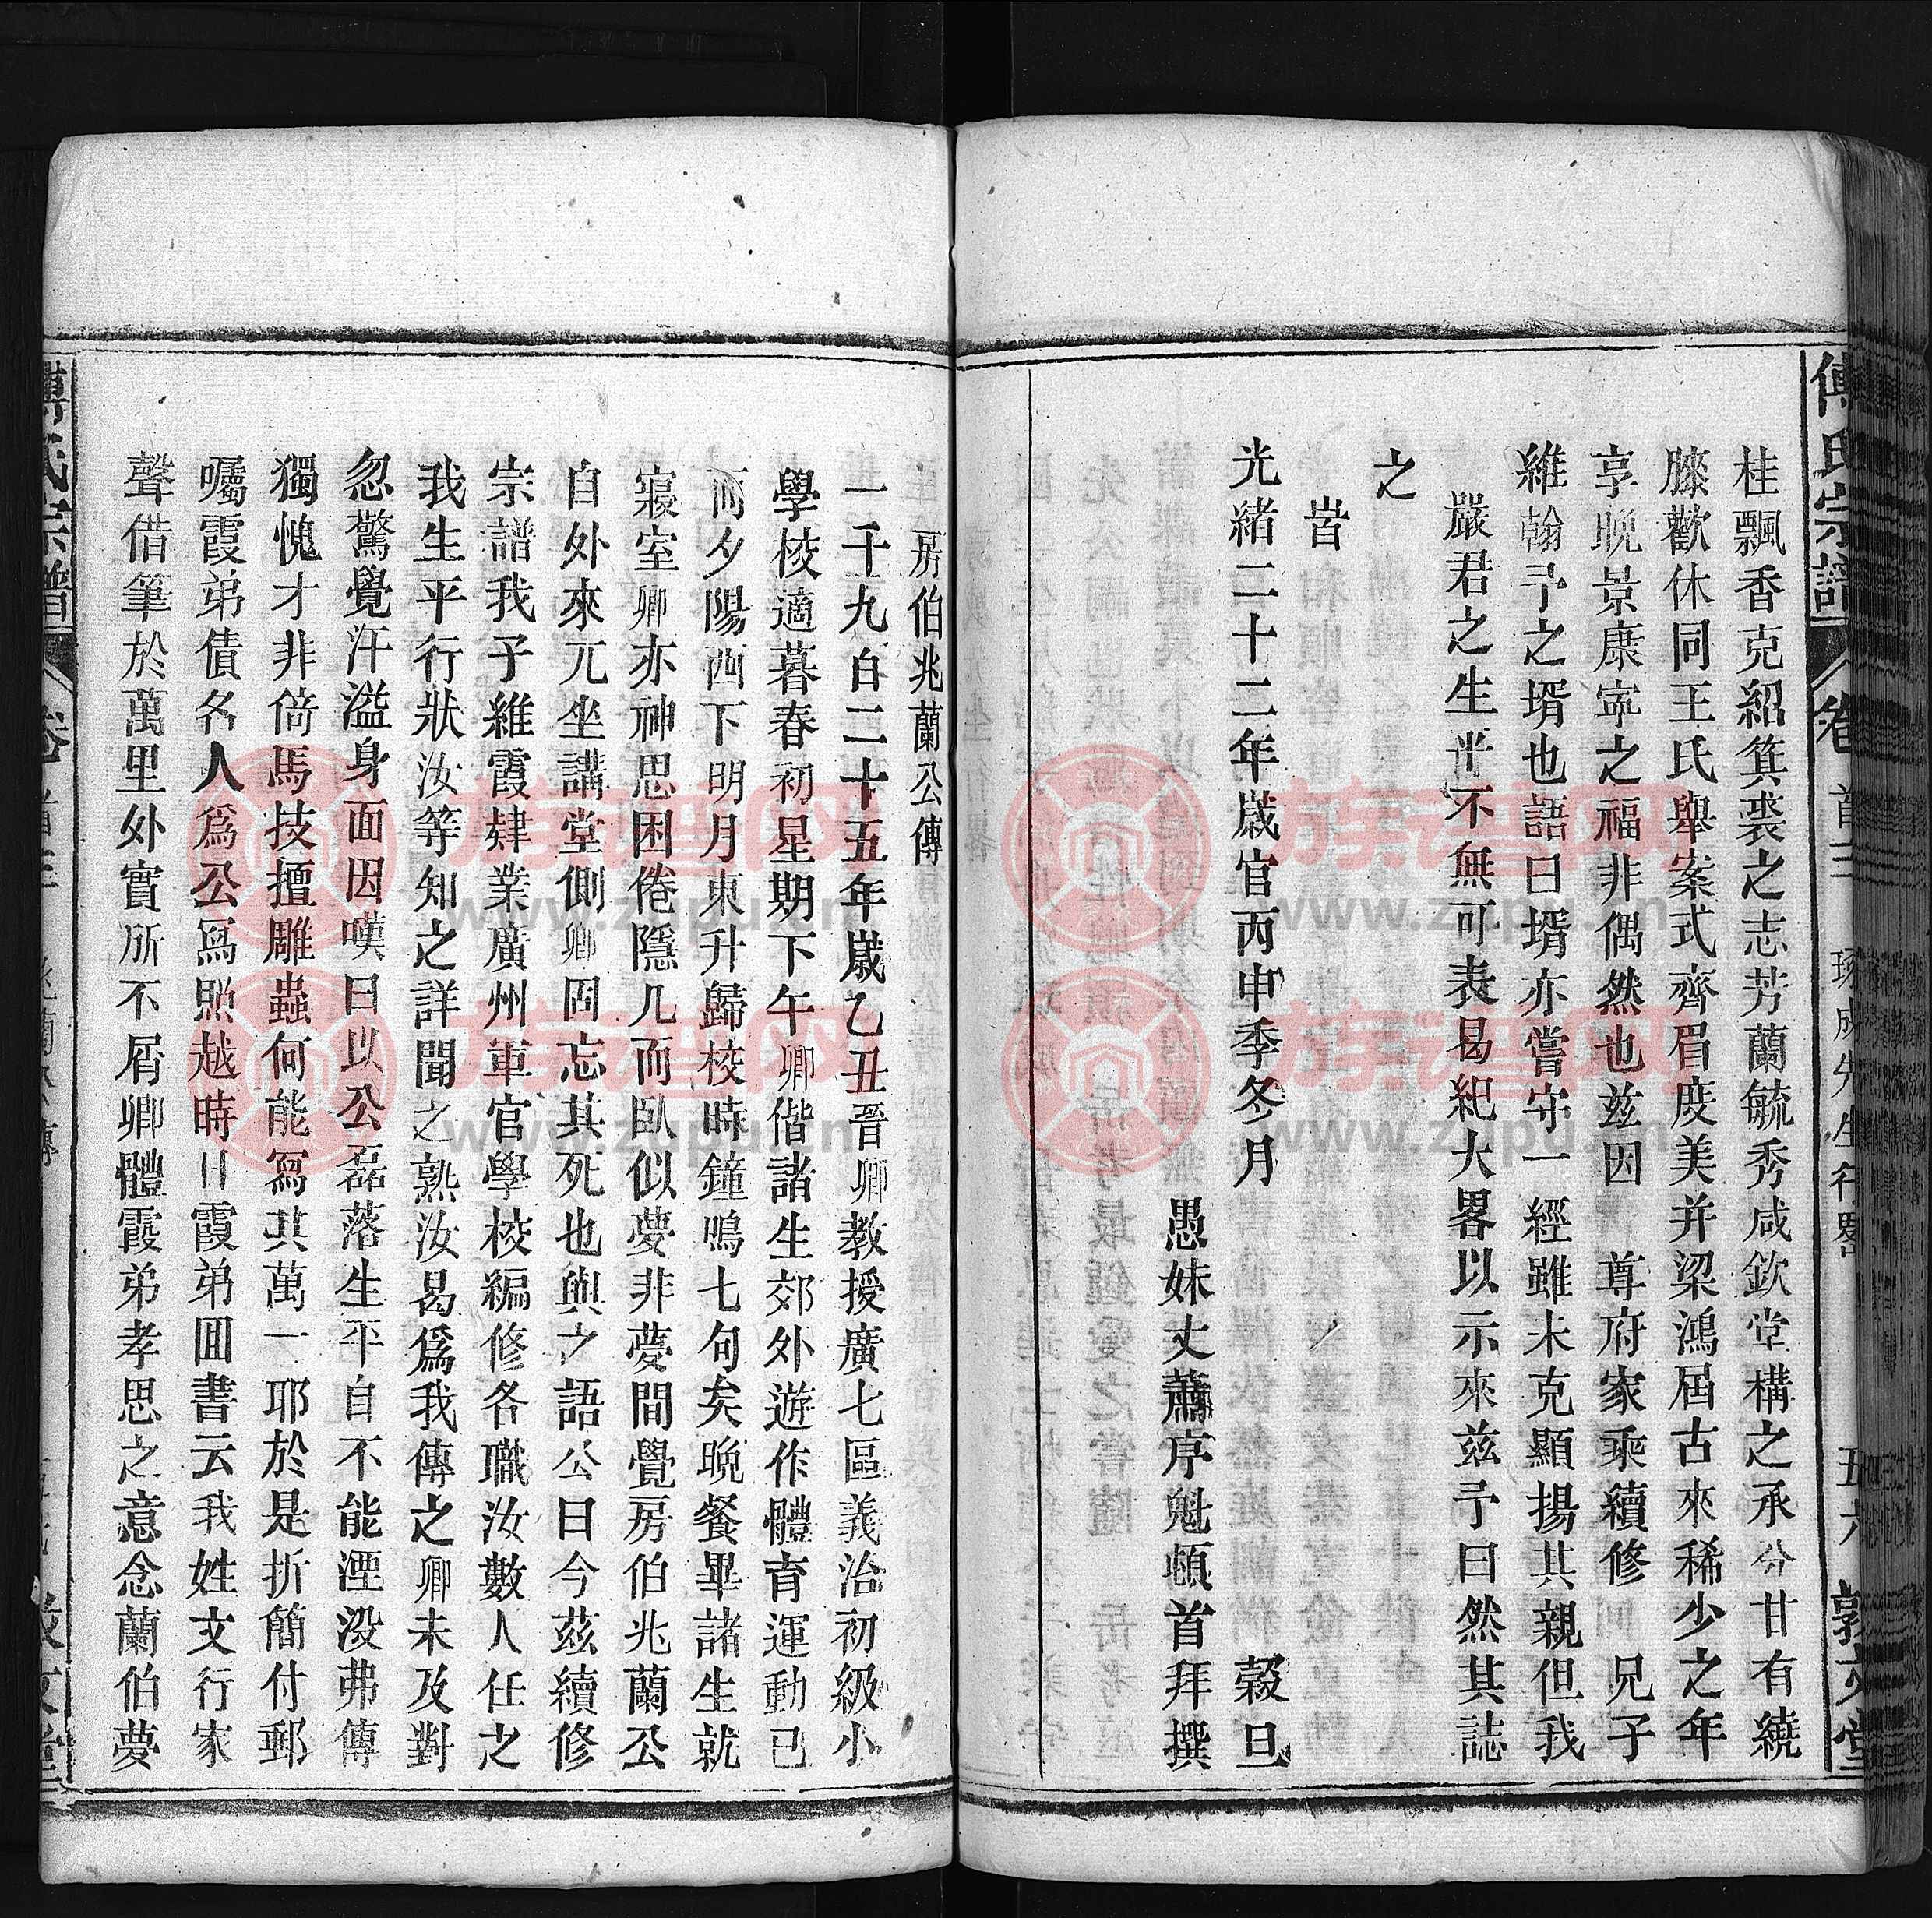 傅氏宗譜 卷首三 琢成先生行畧 五六 敦交堂
桂飄香克紹箕裘之志芳蘭毓秀咸欽堂構之承分甘有繞
膝歡休同王氏舉案式齊眉度美并梁鴻屆古來稀少之年
享晚景康寧之福非偶然也兹因 尊府家乘續修 兄子
維翰予之壻也語曰壻亦嘗守一經雖未克顯揚其親但我
嚴君之生平不無可表曷紀大畧以示來兹予曰然其誌
之
旹
光緒二十二年歲官丙申季冬月 穀旦
愚妹丈蕭序魁頓首拜撰
房伯兆蘭公傳
一千九百二十五年歲乙丑晉卿教授廣七區義治初級小
學校適暮春初星期下午卿偕諸生郊外遊作體育運動已
而夕陽西下明月東升歸校時鐘鳴七句矣晚餐畢諸生就
寢室卿亦神思困倦隱几而臥似夢非夢間覺房伯兆蘭公
自外來兀坐講堂側卿固忘其死也與之語公曰今茲續修
宗譜我子維霞肄業廣州軍官學校編修各職汝數人任之
我生平行狀汝等知之詳聞之熟汝曷爲我傳之卿未及對
忽驚覺汗溢身面因嘆曰以公磊落生平自不能湮没弗傳
獨愧才非倚馬技擅雕蟲何能寫其萬一耶於是折簡付郵
囑霞弟債名人爲公寫照越時日霞弟囬書云我姓文行家
聲借筆於萬里外實所不屑卿體霞弟孝思之意念蘭伯夢
傅氏宗譜 卷首三 兆蘭公傳 敦交堂
族譜网
www.zupu.cn
族譜网
www.zupu.cn
族譜网
www.zupu.cn
族譜网
www.zupu.cn